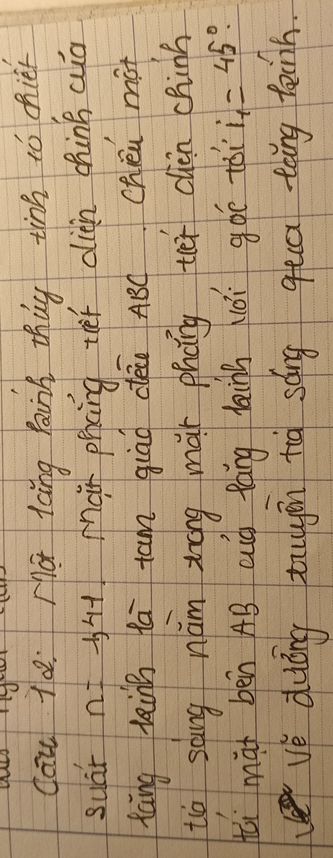 Câu 12: Một lăng kính thủy tinh có chiết
suất n = 1,41. Mặt phẳng tiết diện chính của
lăng kính là tam giác đều ABC. Chiếu một
tia sáng nằm trong mặt phẳng tiết diện chính
tới mặt bên AB của lăng kính với góc tới i₁ = 45°.
Vẽ đường truyền tia sáng qua lăng kính.